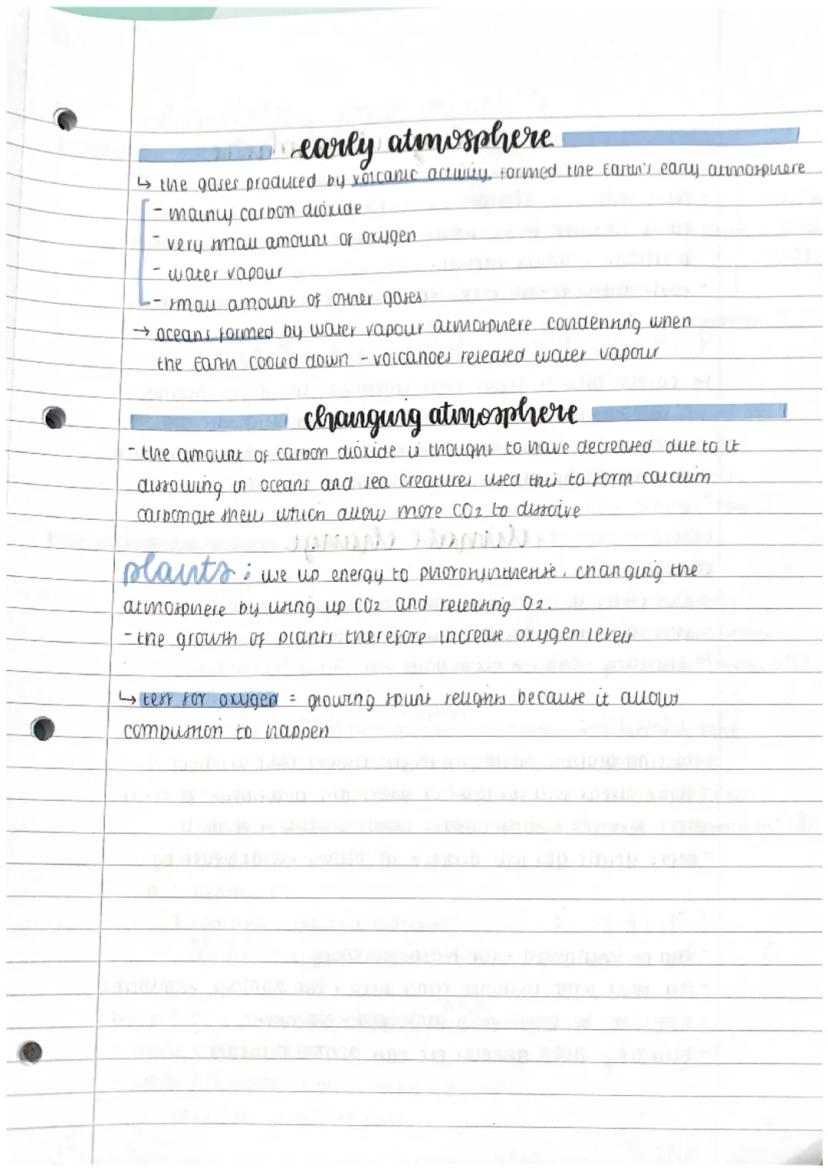 early atmosphere
↳ the gases produced by volcanic activity, formed the Earth's early atmosphere
- mainly carbon dioxide
- very small amount of oxygen
- water vapour
- small amount of other gases
→ oceans formed by water vapour atmosphere condensing when
the Earth cooled down - volcanoes released water vapour
changing atmosphere
- the amount of carbon dioxide is thought to have decreased due to it
dissolving in oceans and sea creatures used this to form calcium
carbonate shells which allow more CO2 to dissolve
plants: use up energy to photosynthesise, changing the
atmosphere by using up CO2 and releasing O2.
- the growth of plants therefore increase oxygen levels
↳ test for oxygen = glowing splint relights because it allows
combustion to happen